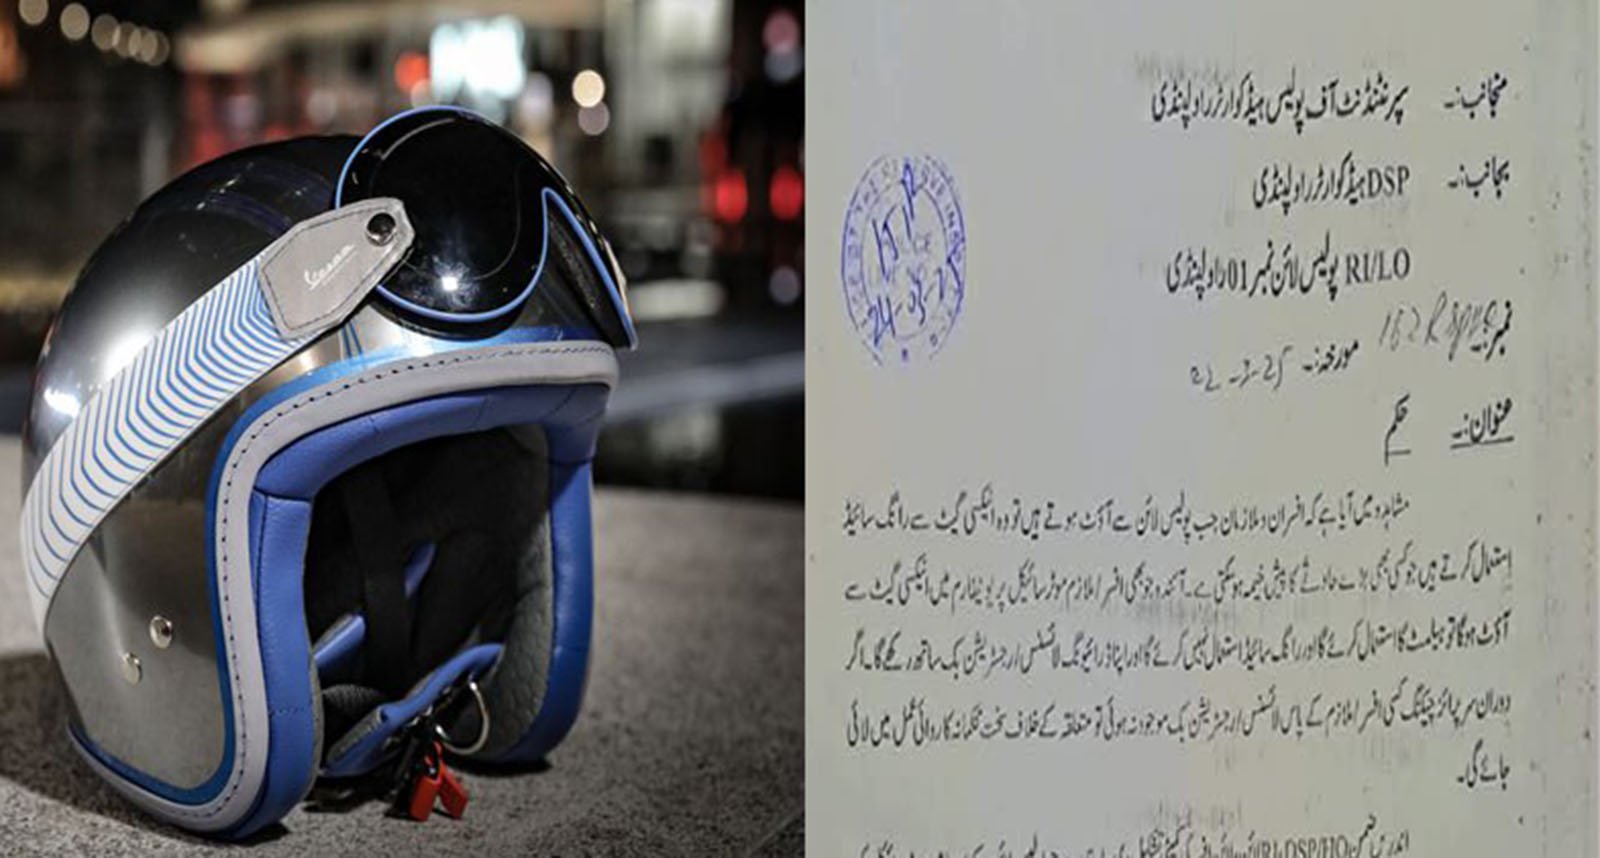 Vespa
منجانب:۔ سپرنٹنڈنٹ آف پولیس ہیڈکوارٹر راولپنڈی
بجانب:۔ DSP ہیڈکوارٹر راولپنڈی
RI/LO پولیس لائن نمبر 01 راولپنڈی
نمبر
مورخہ:۔ 22-3-25
24-03-25
عنوان:۔ حکم
مشاہدہ میں آیا ہے کہ افسران و ملازمان جب پولیس لائن سے آؤٹ ہوتے ہیں تو وہ ایکسی گیٹ سے رانگ سائیڈ
استعمال کرتے ہیں جو کسی بھی بڑے حادثے کا پیش خیمہ ہو سکتی ہے۔ آئندہ جو بھی افسر/ملازم موٹر سائیکل پر یونیفارم میں ایکسی گیٹ سے
آؤٹ ہوگا تو ہیلمٹ کا استعمال کرے گا اور رانگ سائیڈ استعمال نہیں کرے گا اور اپنا ڈرائیونگ لائسنس/رجسٹریشن بک ساتھ رکھے گا۔ اگر
دوران سرپرائز چیکنگ کسی افسر/ملازم کے پاس لائسنس/رجسٹریشن بک موجود نہ ہوئی تو متعلقہ کے خلاف سخت محکمانہ کاروائی عمل میں لائی
جائے گی۔
اندریں ضمن DSP/HQ